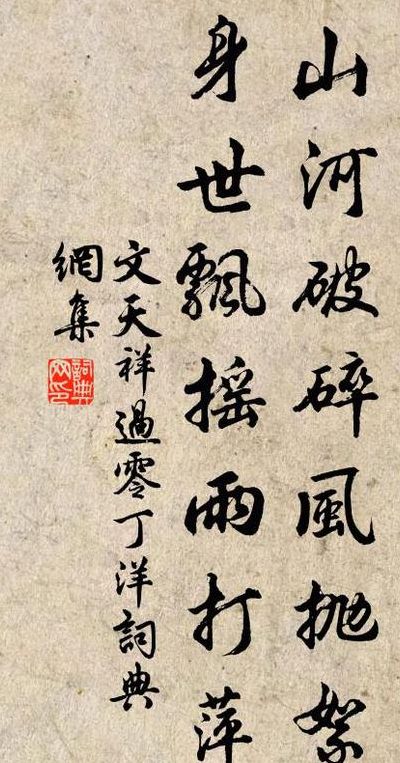 山河破碎風拋絮
身世飄搖雨打萍
文天祥過零丁洋詞典
網集
詞典
网印